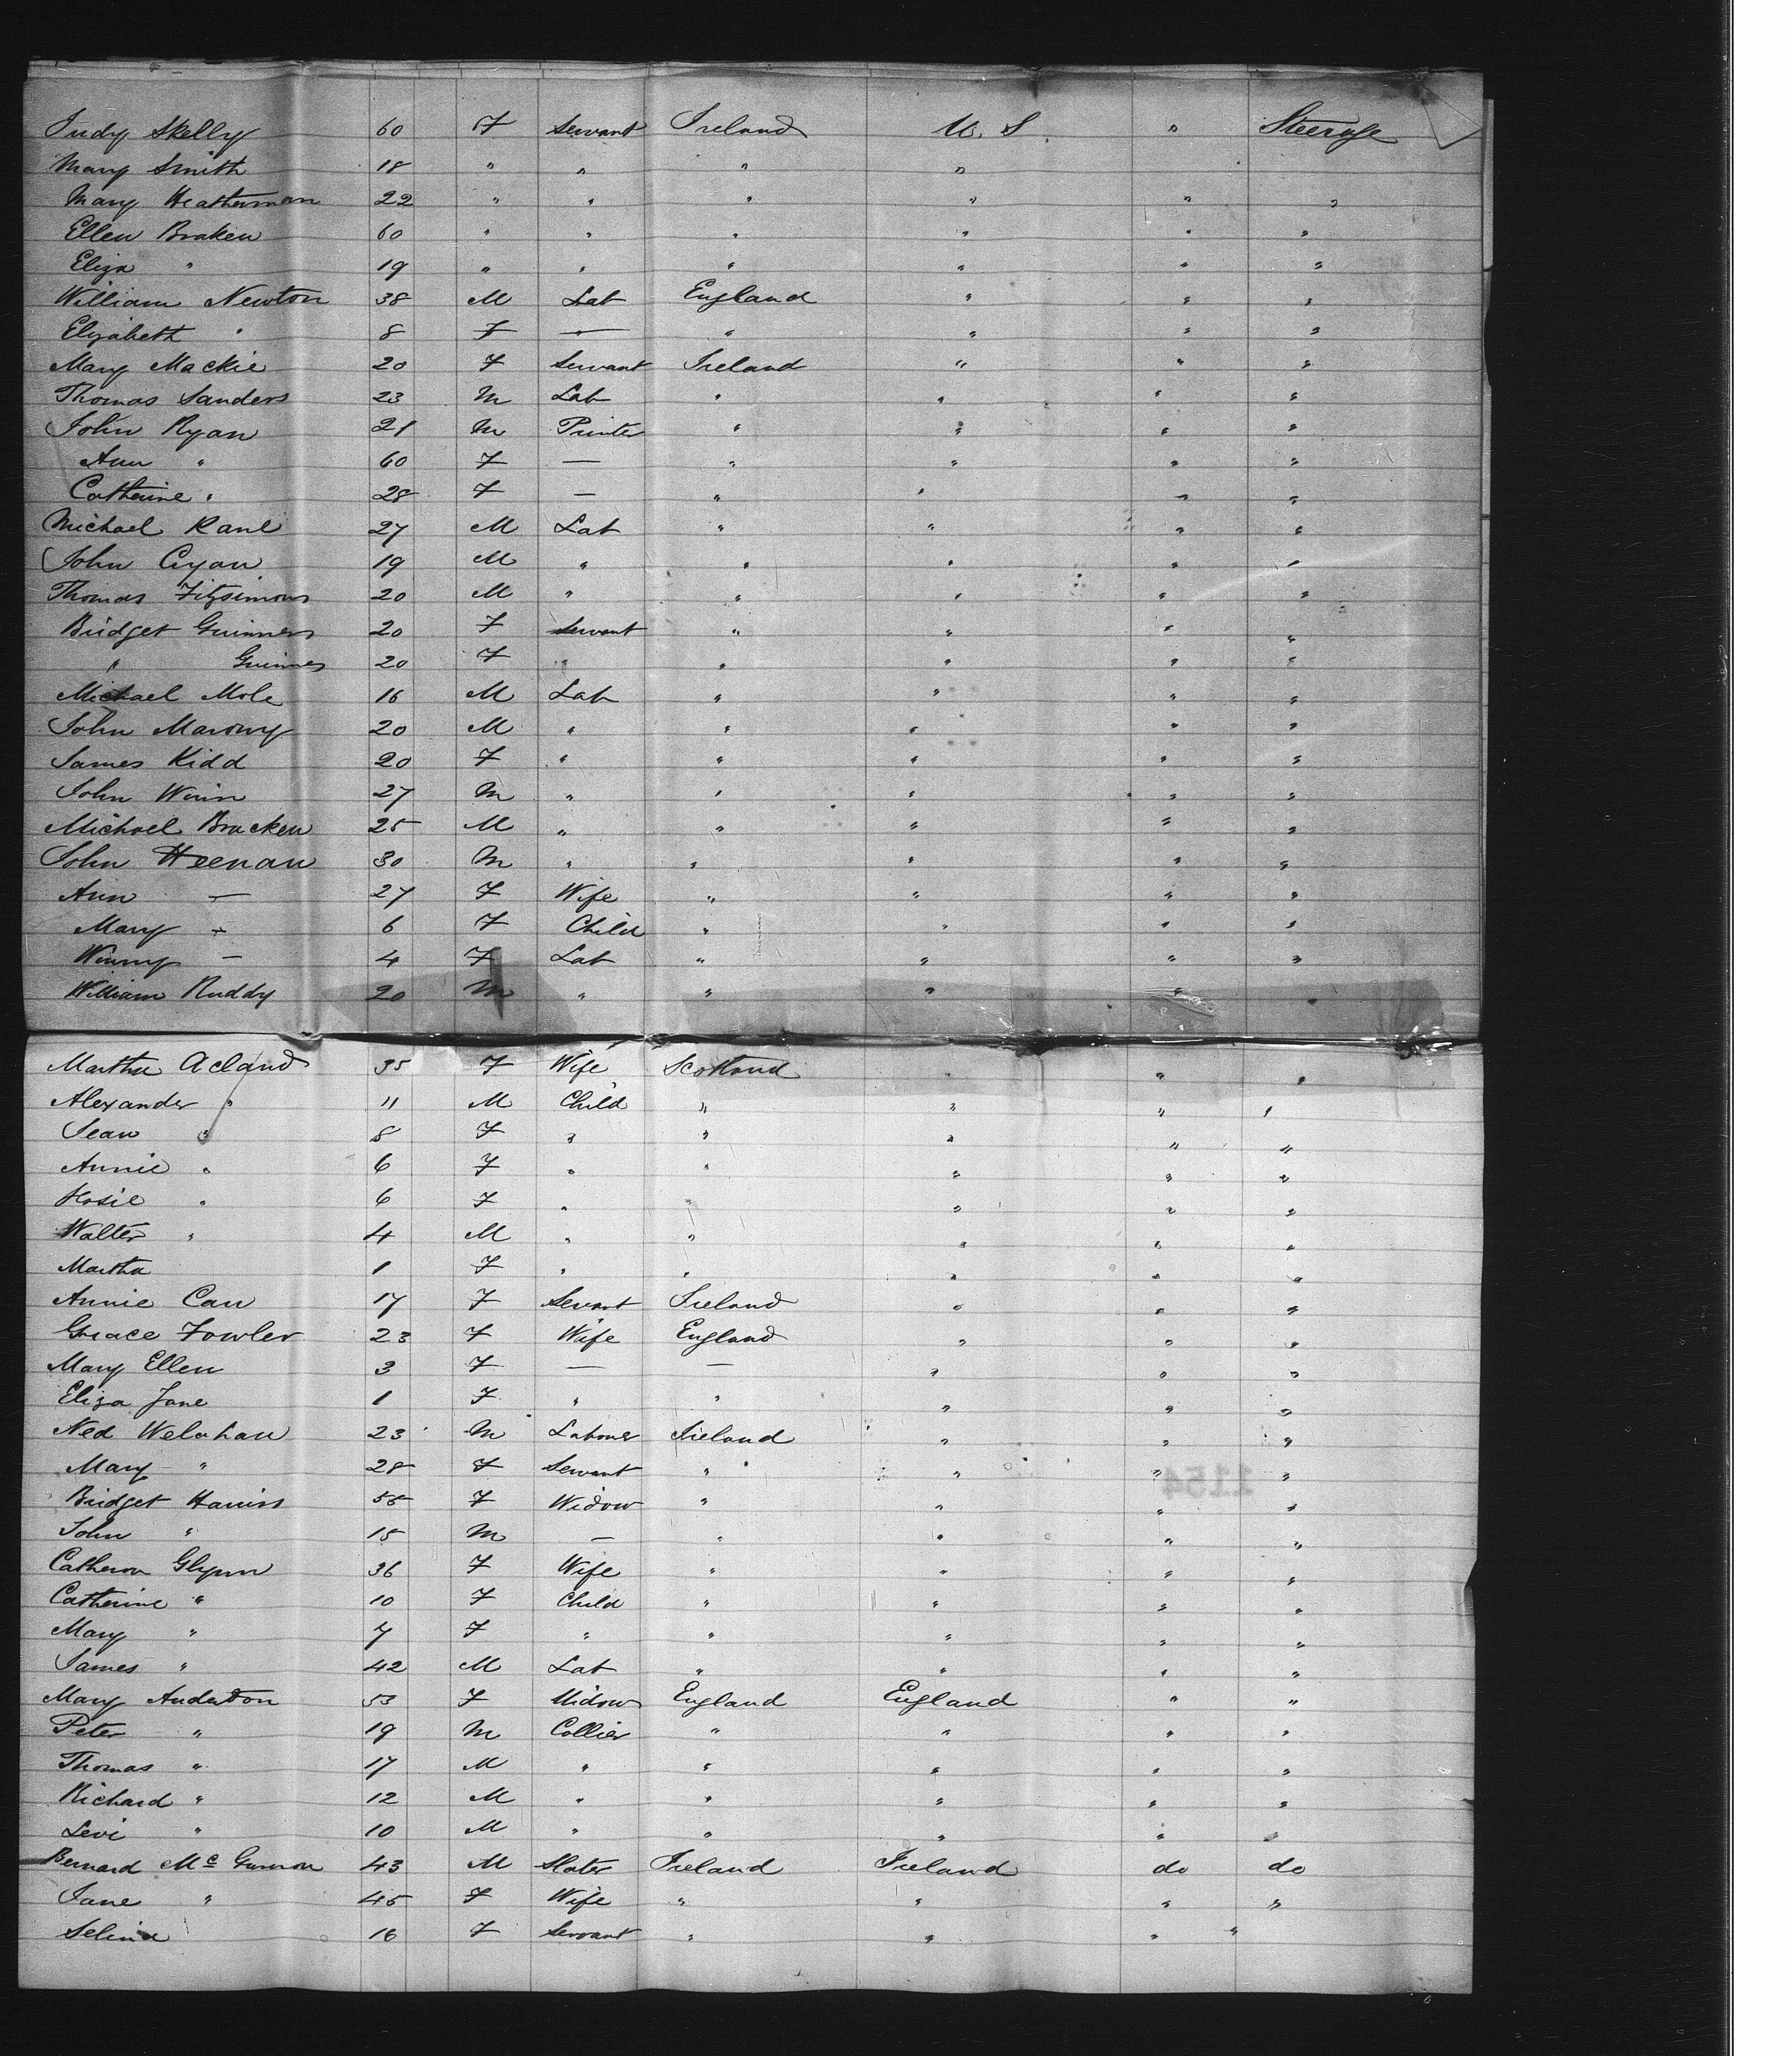 Judy Skelly 60 F Servant Ireland U. S. " Steerage
Mary Smith 18 " " " "
Mary Heatherman 22 " " " " " "
Ellen Braken 60 " " " " " "
Eliza " 19 " " " " " "
William Newton 38 M Lab England " " "
Elizabeth " 8 F — " " " "
Mary Mackie 20 F Servant Ireland " " "
Thomas Sanders 23 M Lab " " " "
John Ryan 21 M Printer " " " "
Ann " 60 F — " " " "
Catherine " 28 F — " " " "
Michael Kane 27 M Lab " " " "
John Cryan 19 M " " " " "
Thomas Fitzsimons 20 M " " " " "
Bridget Guinness 20 F Servant " " " "
" Guinnes 20 F " " " " "
Michael Mole 16 M Lab " " " "
John Marony 20 M " " " " "
James Kidd 20 F " " " " "
John Winn 27 M " " " " "
Michael Bracken 25 M " " " " "
John Heenan 30 M " " " " "
Ann — 27 F Wife " " " "
Mary — 6 F Child " " " "
Winny — 4 F Lab " " " "
William Ruddy 20 M " " " "
Martha Acland 35 F Wife Scotland " " "
Alexander " 11 M Child " " " "
Jean " 8 F " " " " "
Annie " 6 F " " " " "
Rosie " 6 F " " " " "
Walter " 4 M " " " " "
Martha 1 F " " " " "
Annie Carr 17 F Servant Ireland " " "
Grace Fowler 23 F Wife England " " "
Mary Ellen 3 F — — " " "
Eliza Jane 1 F " " " " "
Ned Welahan 23 M Labourer Ireland " " "
Mary " 28 F Servant " " " "
Bridget Harriss 55 F Widow " " " "
John " 15 M — " " " "
Catheron Glynn 36 F Wife " " " "
Catherine " 10 F Child " " " "
Mary " 7 F " " " " "
James " 42 M Lab " " " "
Mary Anderton 53 F Widow England England " "
Peter " 19 M Collier " " " "
Thomas " 17 M " " " " "
Richard " 12 M " " " " "
Levi " 10 M " " " " "
Bernard Mc 43 M Slater Ireland Ireland do do
Jane " 45 F Wife " " " "
Selina 16 F Servant " " " "